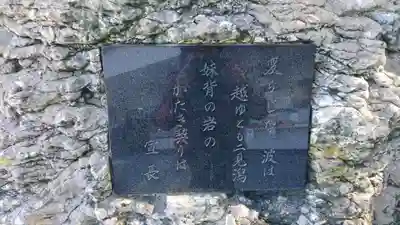 変らじな 波は
越ゆとも二見潟
妹背の岩の
かたき契りは
宣長